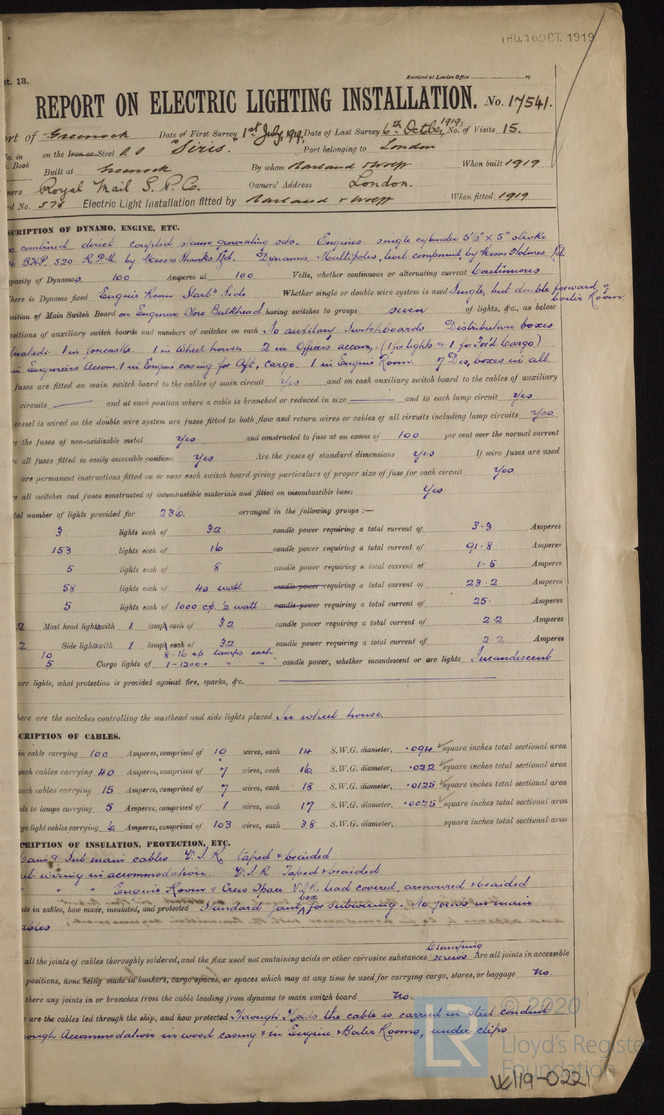 THU. 16 OCT. 1919
pt. 13.
Received at London Office 19
REPORT ON ELECTRIC LIGHTING INSTALLATION. No. 17541.
ort of Greenock Date of First Survey 1st July 1919 Date of Last Survey 6th October 1919 No. of Visits 15.
No. in on the Iron or Steel S.S "Siris." Port belonging to London
. Book Built at Greenock By whom Harland & Wolff When built 1919
ners Royal Mail S. P. C. Owners' Address London.
rd No. 573 Electric Light Installation fitted by Harland & Wolff When fitted 1919
SCRIPTION OF DYNAMO, ENGINE, ETC.
combined direct coupled steam generating sets. Engines single cylinder 5½" x 5" stroke
BHP. 520 R.P.M. by Messrs Shanks Ltd. Dynamos, Multipoles, level compound, by Messrs Holmes Ltd
apacity of Dynamos 100 Amperes at 100 Volts, whether continuous or alternating current Continuous
here is Dynamo fixed Engine Room Starb'd Side Whether single or double wire system is used Single, but double forward, & boiler Room.
osition of Main Switch Board on Engineers Store Bulkhead having switches to groups seven of lights, &c., as below
ositions of auxiliary switch boards and numbers of switches on each No auxiliary Switchboards Distribution boxes
situated. 1 in forecastle. 1 in Wheel house 2 in Officers accom. (1 for lights & 1 for For'd Cargo)
in Engineers Accom. 1 in Engine casing for Aft. Cargo. 1 in Engine Room. 7 Dis. boxes in all.
fuses are fitted on main switch board to the cables of main circuit Yes and on each auxiliary switch board to the cables of auxiliary
circuits — and at each position where a cable is branched or reduced in size — and to each lamp circuit Yes
vessel is wired on the double wire system are fuses fitted to both flow and return wires or cables of all circuits including lamp circuits Yes
e the fuses of non-oxidizable metal Yes and constructed to fuse at an excess of 100 per cent over the normal current
e all fuses fitted in easily accessible positions Yes Are the fuses of standard dimensions Yes If wire fuses are used
are permanent instructions fitted on or near each switch board giving particulars of proper size of fuse for each circuit Yes
re all switches and fuses constructed of incombustible materials and fitted on incombustible bases Yes
tal number of lights provided for 236. arranged in the following groups :—
3 lights each of 32 candle power requiring a total current of 3·3 Amperes
153 lights each of 16 candle power requiring a total current of 91·8 Amperes
5 lights each of 8 candle power requiring a total current of 1·5 Amperes
58 lights each of 40 watt candle power requiring a total current of 23·2 Amperes
5 lights each of 1000 cp ½ watt candle power requiring a total current of 25· Amperes
2 Mast head lights with 1 lamp each of 32 candle power requiring a total current of 2·2 Amperes
2 Side lights with 1 lamp each of 32 candle power requiring a total current of 2·2 Amperes
10 8-16 cp lamps each.
5 Cargo lights of 1-1200 " " " candle power, whether incandescent or arc lights Incandescent
arc lights, what protection is provided against fire, sparks, &c.
here are the switches controlling the masthead and side lights placed In wheel house.
SCRIPTION OF CABLES.
in cable carrying 100 Amperes, comprised of 19 wires, each 14 S.W.G. diameter, ·094 square inches total sectional area
nch cables carrying 40 Amperes, comprised of 7 wires, each 16 S.W.G. diameter, ·022 square inches total sectional area
nch cables carrying 15 Amperes, comprised of 7 wires, each 18 S.W.G. diameter, ·0125 square inches total sectional area
ds to lamps carrying 5 Amperes, comprised of 1 wires, each 17 S.W.G. diameter, ·0025 square inches total sectional area
go light cables carrying 6 Amperes, comprised of 103 wires, each 38 S.W.G. diameter, square inches total sectional area
CRIPTION OF INSULATION, PROTECTION, ETC.
ain & Sub main cables V.I.R. taped & braided
ub wiring in accommodation V.I.R. Taped & braided
" " Engine Room & Crew Space V.I.R. lead covered, armoured & braided
nts in cables, how made, insulated, and protected Standard joint box for subwiring. No joints in main
ables
all the joints of cables thoroughly soldered, and the flux used not containing acids or other corrosive substances Clamping screws Are all joints in accessible
positions, none being made in bunkers, cargo spaces, or spaces which may at any time be used for carrying cargo, stores, or baggage No.
there any joints in or branches from the cable leading from dynamo to main switch board No.
are the cables led through the ship, and how protected Through Holds the cable is carried in steel conduit
rough Accommodation in wood casing & in Engine & Boiler Rooms, under clips
© 2020
LR
Lloyd's Register
Foundation
W119-0221